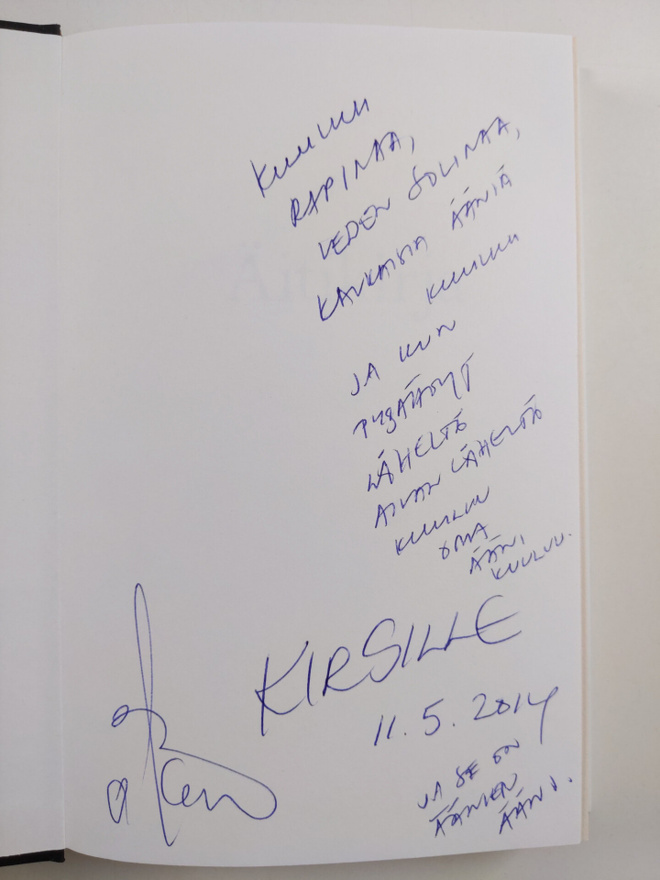 KUULUU
RAPINAA,
VEDEN SOLINAA,
KAUKAISIA ÄÄNIÄ
KUULUU
JA KUN
PYSÄHDYT
LÄHELTÄ
AIVAN LÄHELTÄ
KUULUU
OMA
ÄÄNI,
KUULUU.
KIRSILLE
11.5.2014
JA SE ON
ÄÄNIEN
ÄÄNI.